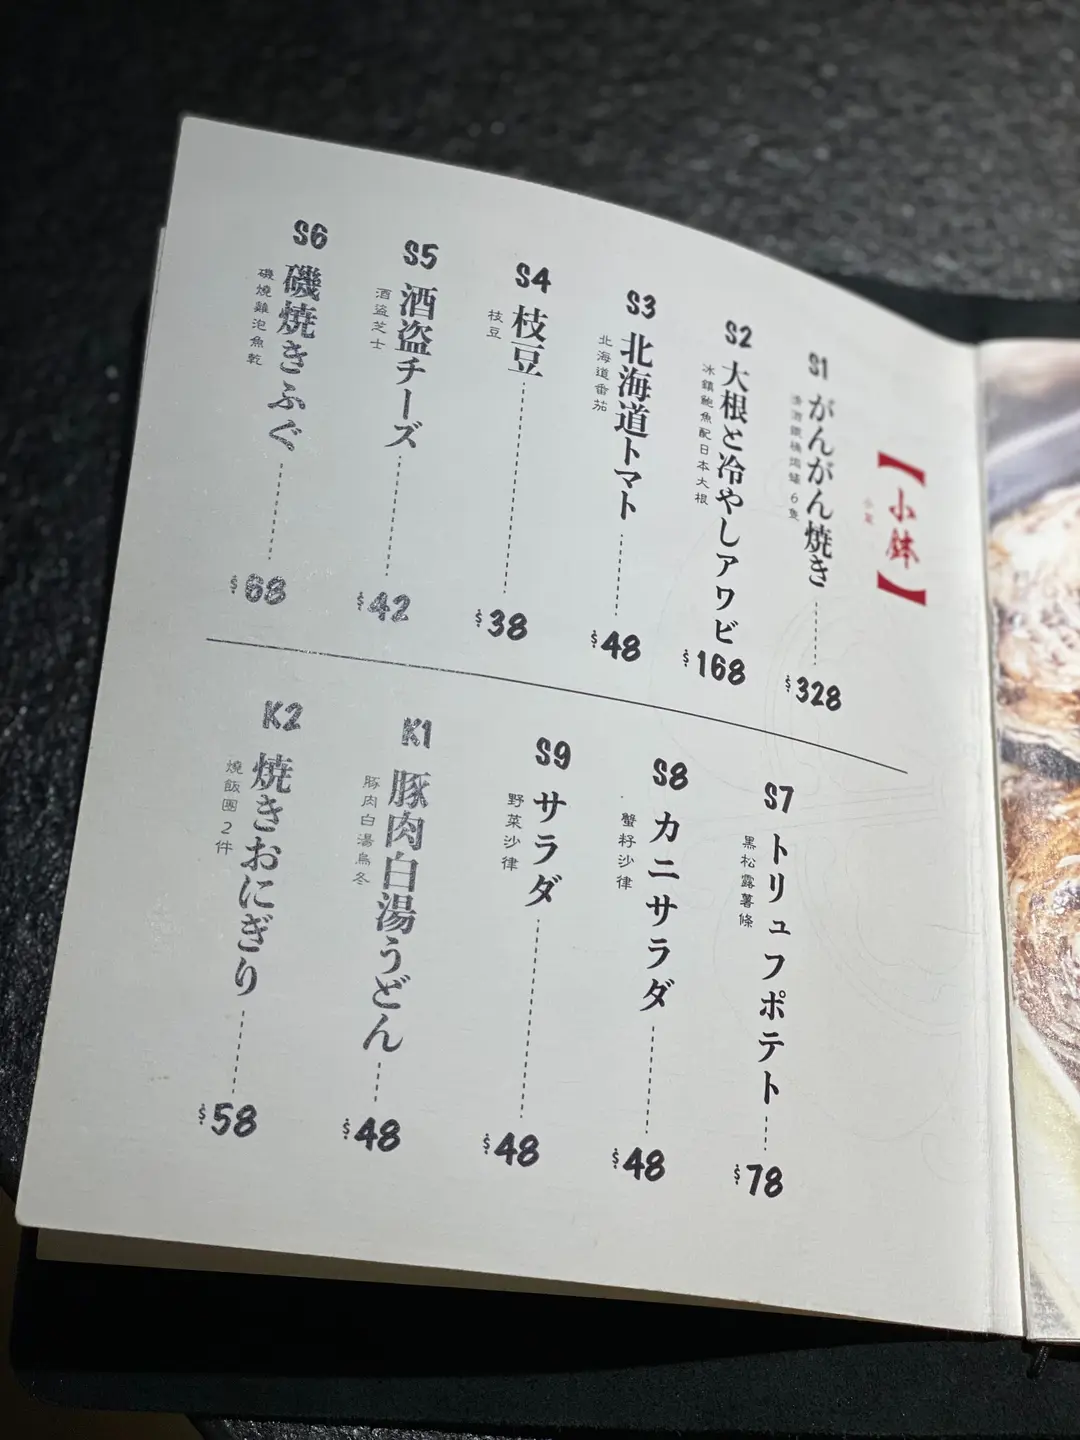 【小鉢】
小菜
S1 がんがん焼き $328
清酒鐵桶焗蠔6隻
S2 大根と冷やしアワビ $168
冰鎮鮑魚配日本大根
S3 北海道トマト $48
北海道番茄
S4 枝豆 $38
枝豆
S5 酒盗チーズ $42
酒盜芝士
S6 磯焼きふぐ $68
磯燒雞泡魚乾
S7 トリュフポテト $78
黑松露薯條
S8 カニサラダ $48
蟹籽沙律
S9 サラダ $48
野菜沙律
K1 豚肉白湯うどん $48
豚肉白湯烏冬
K2 焼きおにぎり $58
燒飯團2件